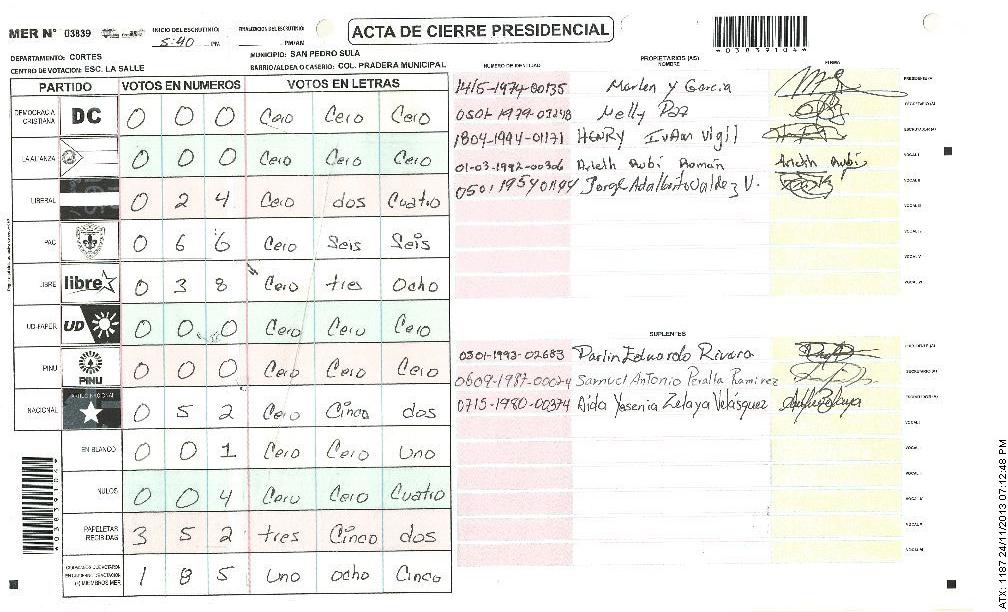 MER N° 03839 INICIO DEL ESCRUTINIO: 5:40 PM FINALIZACION DEL ESCRUTINIO: PM/AM
ACTA DE CIERRE PRESIDENCIAL
DEPARTAMENTO: CORTES MUNICIPIO: SAN PEDRO SULA
CENTRO DE VOTACION: ESC. LA SALLE BARRIO/ALDEA O CASERIO: COL. PRADERA MUNICIPAL
PARTIDO VOTOS EN NUMEROS VOTOS EN LETRAS
DEMOCRACIA CRISTIANA DC 0 0 0 Cero Cero Cero
LA ALIANZA 0 0 0 Cero Cero Cero
LIBERAL 0 2 4 Cero dos Cuatro
PAC 0 6 6 Cero Seis Seis
LIBRE libre 0 3 8 Cero tres Ocho
UD-FAPER UD 0 0 0 Cero Cero Cero
PINU PINU 0 0 0 Cero Cero Cero
NACIONAL 0 5 2 Cero Cinco dos
EN BLANCO 0 0 1 Cero Cero Uno
NULOS 0 0 4 Cero Cero Cuatro
PAPELETAS RECIBIDAS 3 5 2 tres Cinco dos
1 8 5 Uno Ocho Cinco
NUMERO DE IDENTIDAD PROPIETARIOS (AS) NOMBRE FIRMA
1415-1974-00135 Marlen y Garcia PRESIDENTE(A)
0501-1979-03248 Melly Paz SECRETARIO(A)
1804-1994-01171 HENRY Ivan Vigil ESCRUTADOR(A)
01-03-1992-00306 Arleth Rubí Román Arleth Rubí VOCAL I
0501 1954 01194 Jorge Adalberto Valdez V. VOCAL II
SUPLENTES
0501-1993-02683 Darlin Eduardo Rivera
0609-1987-00024 Samuel Antonio Peralta Ramirez SECRETARIO(A)
0715-1980-00374 Aida Yasenia Zelaya Velásquez
*03839104*
*03839104*
ATX: 1187 24/11/2013 07:12:48 PM